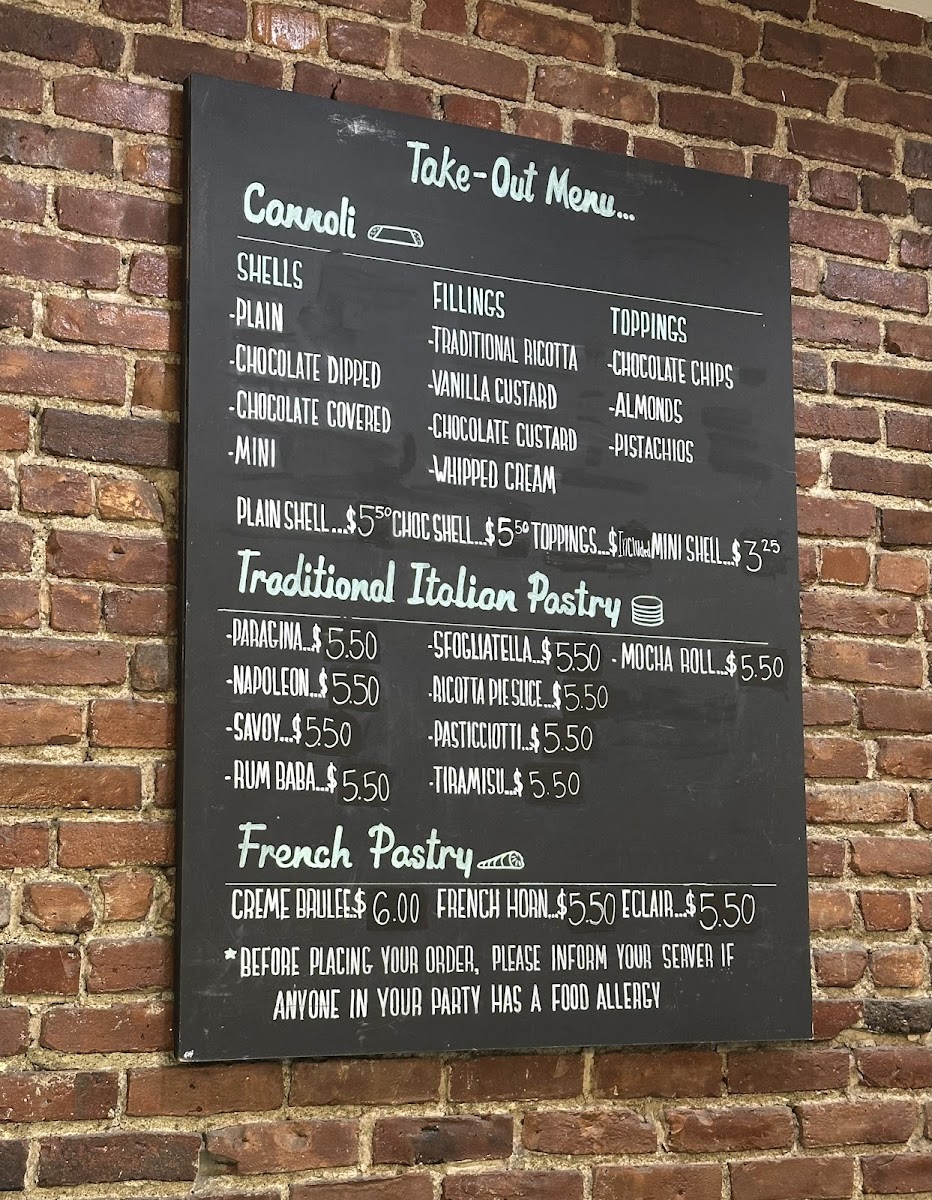 Take-Out Menu...
Cannoli
SHELLS
-PLAIN
-CHOCOLATE DIPPED
-CHOCOLATE COVERED
-MINI
FILLINGS
-TRADITIONAL RICOTTA
-VANILLA CUSTARD
-CHOCOLATE CUSTARD
-WHIPPED CREAM
TOPPINGS
-CHOCOLATE CHIPS
-ALMONDS
-PISTACHIOS
PLAIN SHELL...$5.50 CHOC SHELL...$5.50 TOPPINGS...$Included MINI SHELL...$3.25
Traditional Italian Pastry
-PARAGINA...$5.50 -SFOGLIATELLA...$5.50 -MOCHA ROLL...$5.50
-NAPOLEON...$5.50 -RICOTTA PIE SLICE...$5.50
-SAVOY...$5.50 -PASTICCIOTTI...$5.50
-RUM BABA...$5.50 -TIRAMISU...$5.50
French Pastry
CREME BRULEE.$6.00 FRENCH HORN...$5.50 ECLAIR...$5.50
*BEFORE PLACING YOUR ORDER, PLEASE INFORM YOUR SERVER IF
ANYONE IN YOUR PARTY HAS A FOOD ALLERGY